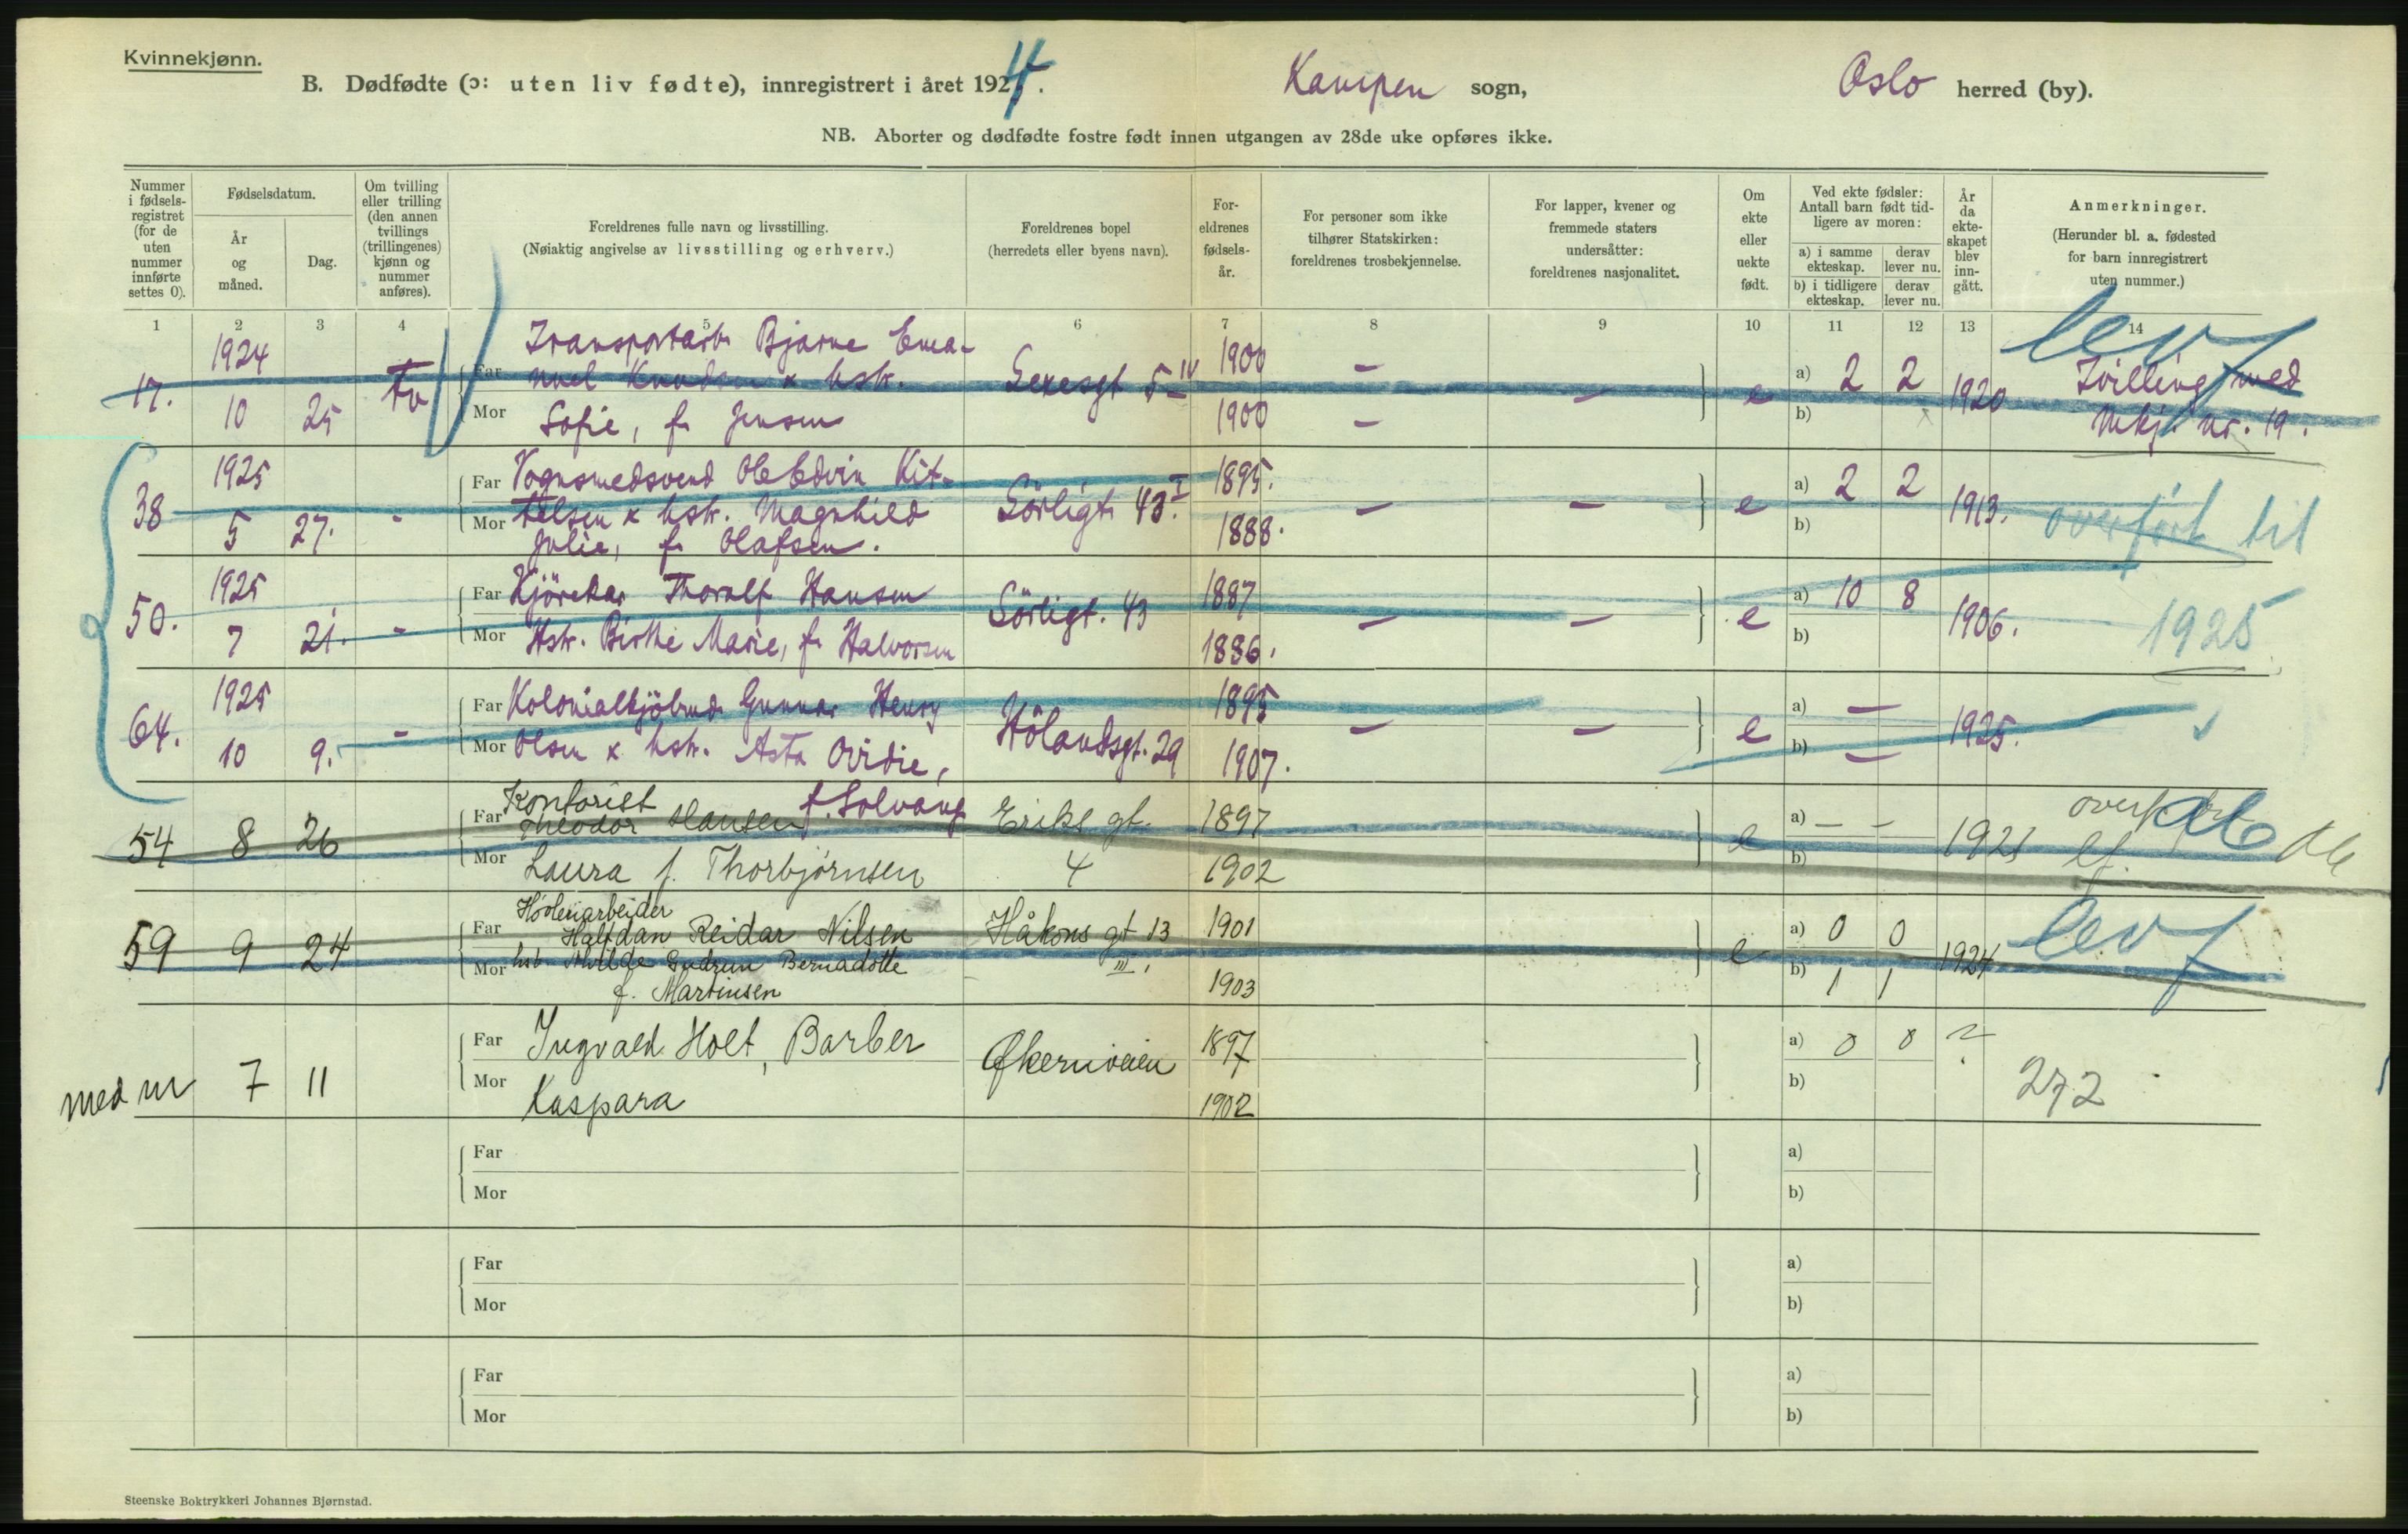 Kvinnekjønn.
B. Dødfødte (ɔ: uten liv fødte), innregistrert i året 1924. Kampen sogn, Oslo herred (by).
NB. Aborter og dødfødte fostre født innen utgangen av 28de uke opføres ikke.
Nummer i fødselsregistret (for de uten nummer innførte settes 0).
Fødselsdatum.
År og måned.
Dag.
Om tvilling eller trilling (den annen tvillings (trillingenes) kjønn og nummer anføres).
Foreldrenes fulle navn og livsstilling.
(Nøiaktig angivelse av livsstilling og erhverv.)
Foreldrenes bopel
(herredets eller byens navn).
Foreldrenes fødselsår.
For personer som ikke tilhører Statskirken: foreldrenes trosbekjennelse.
For lapper, kvener og fremmede staters undersåtter: foreldrenes nasjonalitet.
Om ekte eller uekte født.
Ved ekte fødsler: Antall barn født tidligere av moren:
a) i samme ekteskap. derav lever nu.
b) i tidligere ekteskap. derav lever nu.
År da ekteskapet blev inngått.
Anmerkninger.
(Herunder bl. a. fødested for barn innregistrert uten nummer.)
1 2 3 4 5 6 7 8 9 10 11 12 13 14
levf
1924 Transportarb. Bjarne Ema- 1900 –
17. Tv Far nuel Knudsen & hstr. 5 IV – e a) 2 2 1920 Tvilling med
10 25 Mor Sofie, f. Jensen 1900 – b) Mkj. nr. 19.
1925 Far Vognsmedsvend Ole Edvin Kit- 1895. a) 2 2
38 - Mor telsen & hstr. Magnhild Sörligt. 43 I. – – e b) 1913. overført til
5 27. Julie, f. Olafsen. 1888.
1925 Far Kjörekar Thoralf Hansen Sörligt. 43 1887 a) 10 8
50. - – – e 1906. 1925
7 21. Mor Hstr. Birthe Marie, f. Halvorsen 1886. b)
1925 Far Kolonialkjöbmd. Gunnar Henry 1895 a) –
64. - Hölandsgt. 29 – – e 1925.
10 9. Mor Olsen & hstr. Asta Ovidie, 1907. b) –
f. Solvang
Kontorist
54 8 26 Far Theodor Hansen Eriks gt. 1897 e a) – – 1921
Mor Laura f. Thorbjørnsen 4 1902 b)
Far Halfdan Reidar Nilsen Håkons gt 13 1901 a) 0 0
59 9 24 Mor hstr Gudrun Bernadotte III. e b) 1 1 1924 levf
f. Martinsen 1903
Far Ingvald Holt, Barber 1897 a) 0 0 ?
med nr 7 11 Økernveien 272
Mor Kaspara 1902 b)
Far a)
Mor b)
Far a)
Mor b)
Far a)
Mor b)
Steenske Boktrykkeri Johannes Bjørnstad.